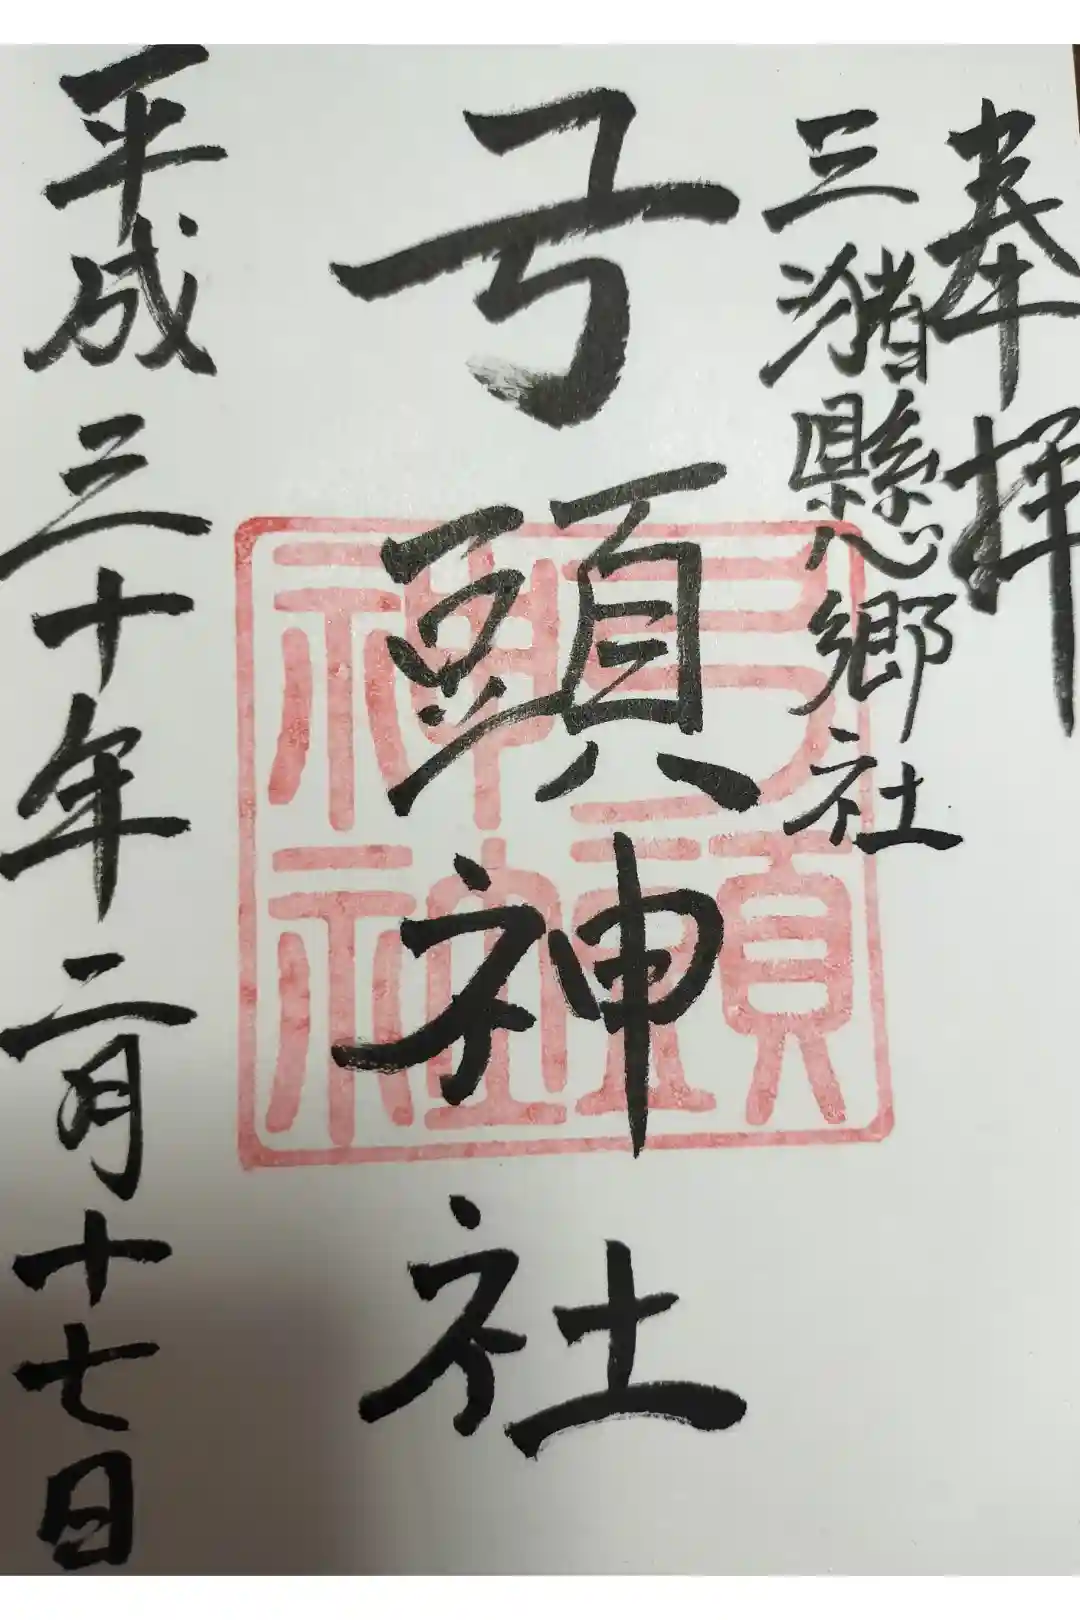 奉拝
三潴懸郷社
弓頭神社
弓頭
神社
平成三十年二月十七日